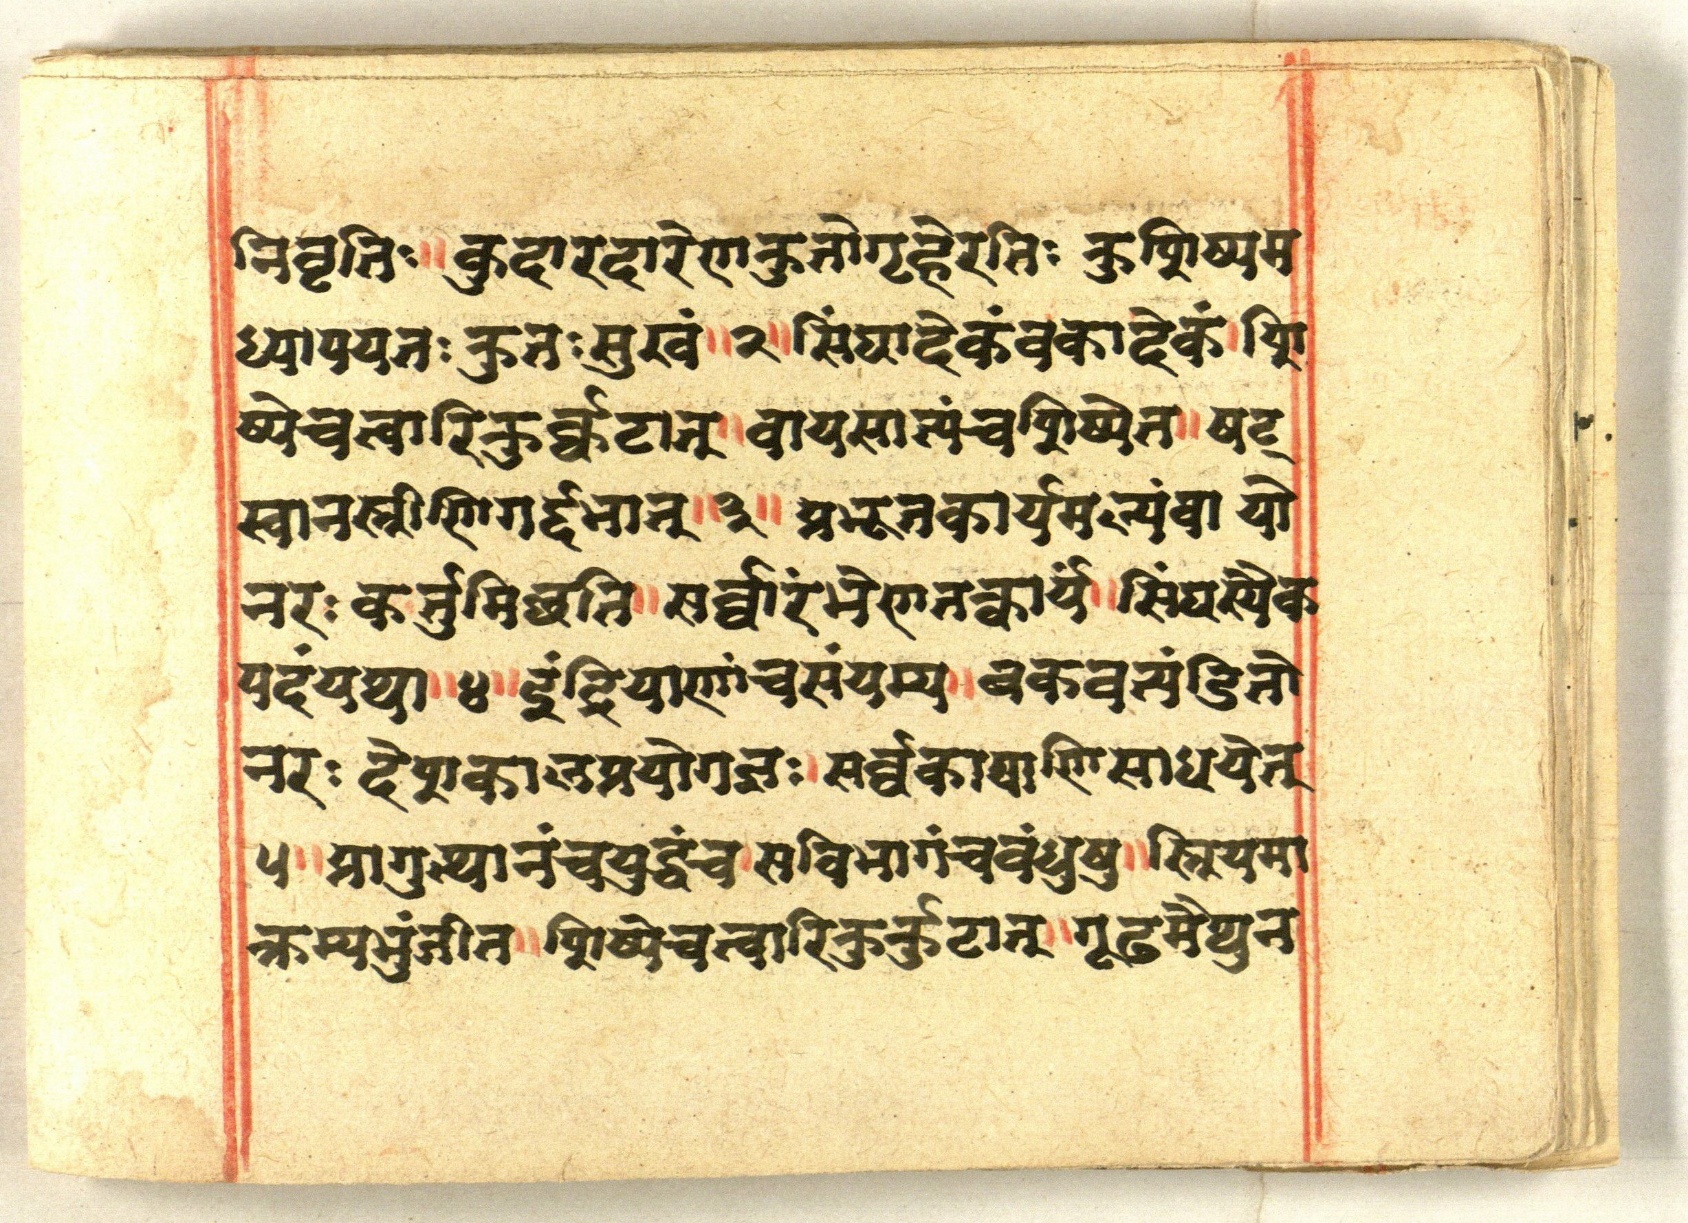 निवृतिः॥ कुदारदारेणकुतोगृहेरतिः कुशिष्यम
ध्यापयतः कुतःसुखं॥२॥सिंघादेकंवकादेकं।शि
ष्येचत्वारिकुर्क्कटात्॥वायसात्पंचशिष्येत॥षट्
स्वानस्त्रीणिगर्द्दभात्॥३॥ प्रभूतकार्यमल्पंवा यो
नरः कर्त्तुमिछति॥सर्व्वारंभेणतत्कार्यं॥सिंघस्यैक
पदंयथा॥४॥इंद्रियाणांचसंयम्य॥बकवत्पंडितो
नरः देशकालप्रयोगज्ञः।सर्व्वकार्याणिसाधयेत्
५॥प्रागुत्थानंचयुद्धंच।सविभागंचवंधुषु॥स्त्रियमा
क्रम्यभुंजीत॥शिष्येचत्वारिकुर्कुटात्॥गूढमैथुन